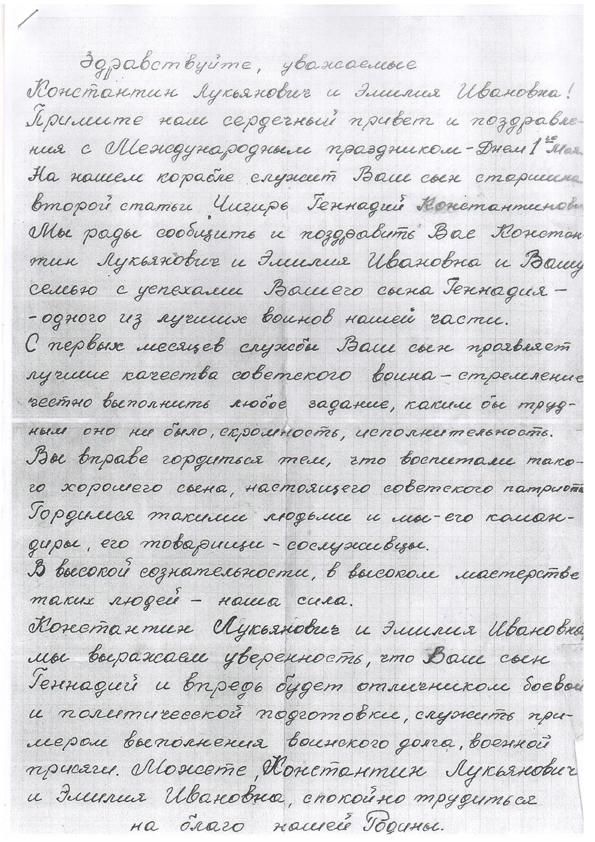 Здравствуйте, уважаемые
Константин Лукьянович и Эмилия Ивановна!
Примите наш сердечный привет и поздравле-
ния с Международным праздником - Днем 1го Мая.
На нашем корабле служит Ваш сын старшина
второй статьи Чигирь Геннадий Константинович
Мы рады сообщить и поздравить Вас Констан
тин Лукьянович и Эмилия Ивановна и Вашу
семью с успехами Вашего сына Геннадия -
- одного из лучших воинов нашей части.
С первых месяцев службы Ваш сын проявляет
лучшие качества советского воина - стремление
честно выполнить любое задание, каким бы труд-
ным оно ни было, скромность, исполнительность.
Вы вправе гордиться тем, что воспитали тако-
го хорошего сына, настоящего советского патриота
Гордимся такими людьми и мы - его коман-
диры, его товарищи - сослуживцы.
В высокой сознательности, в высоком мастерстве
таких людей - наша сила.
Константин Лукьянович и Эмилия Ивановна,
мы выражаем уверенность, что Ваш сын
Геннадий и впредь будет отличником боевой
и политической подготовки, служить при-
мером выполнения воинского долга, военной
присяги. Можете, Константин Лукьянович
и Эмилия Ивановна, спокойно трудиться
на благо нашей Родины.